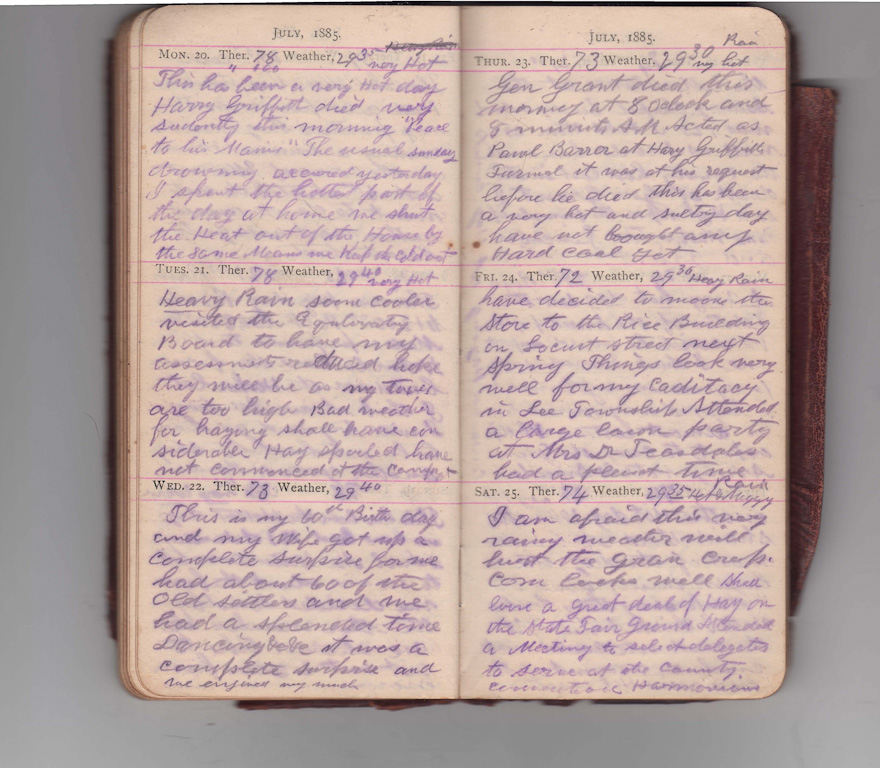 July, 1885.
Mon. 20. Ther. 78 Weather, 29 35 very Hot
" 100
This has been a very Hot day
Harry Griffith died very
sudently this morning "Peace
to his Manis" The usual sunday
drowning accured yesterday
I spent the hottest part of
the day at home we shut
the Heat out of the House by
the same Means we Keep the cold out
Tues. 21. Ther. 78 Weather, 29 40 very Hot
Heavy Rain some cooler
visited the Equilosaty
Board to have my
assesments reduced hope
they will be as my
are too high Bad weather
for haying shall have con
siderable Hay spoiled have
not commenced at the Camp
Wed. 22. Ther. 73 Weather, 29 40
This is my 60th Birth day
and my Wife got up a
complete surprise for me
had about 60 of the
Old settlers and we
had a splended time
Dancing it was a
complete surprise and
we enjoied very much
July, 1885.
Thur. 23. Ther. 73 Weather, 29 30 Rain very hot
Gen Grant died this
morning at 8 Oclock and
8 minuts AM Acted as
Pawl Barror at Hary Griffiths
Furnrel it was at his request
before he died this has been
a very hot and sultry day
have not boought any
Hard coal yet
Fri. 24. Ther. 72 Weather, 29 30 Heavy Rain
have decided to moove the
Store to the Rice Building
on Locust street next
spring Things look very
well for my Caditacy
in Lee Township Attended
a large lawn party
at Mrs Dr Teasdales
had a pleasnt time
Sat. 25. Ther. 74 Weather, 29 35 Rain
I am afraid this very
rainy weather will
hurt the Gran Crop.
Corn looks well Shall
loose a great deal of Hay on
the State Fair Ground Attended
a Meeting to select delegates
to serve at the County.
convention Harmonious